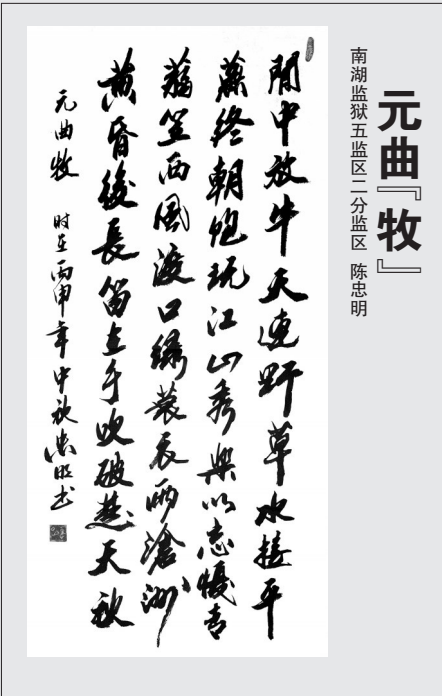 元曲『牧』
南湖监狱五监区二分监区 陈忠明
閒中放牛天連野草水接平
蕪終朝飽玩江山秀樂以忘憂青
蒻笠西風渡口綠蓑衣雨滄洲
黄昏後長笛在手吹破楚天秋
元曲牧 时在丙申年中秋忠明书